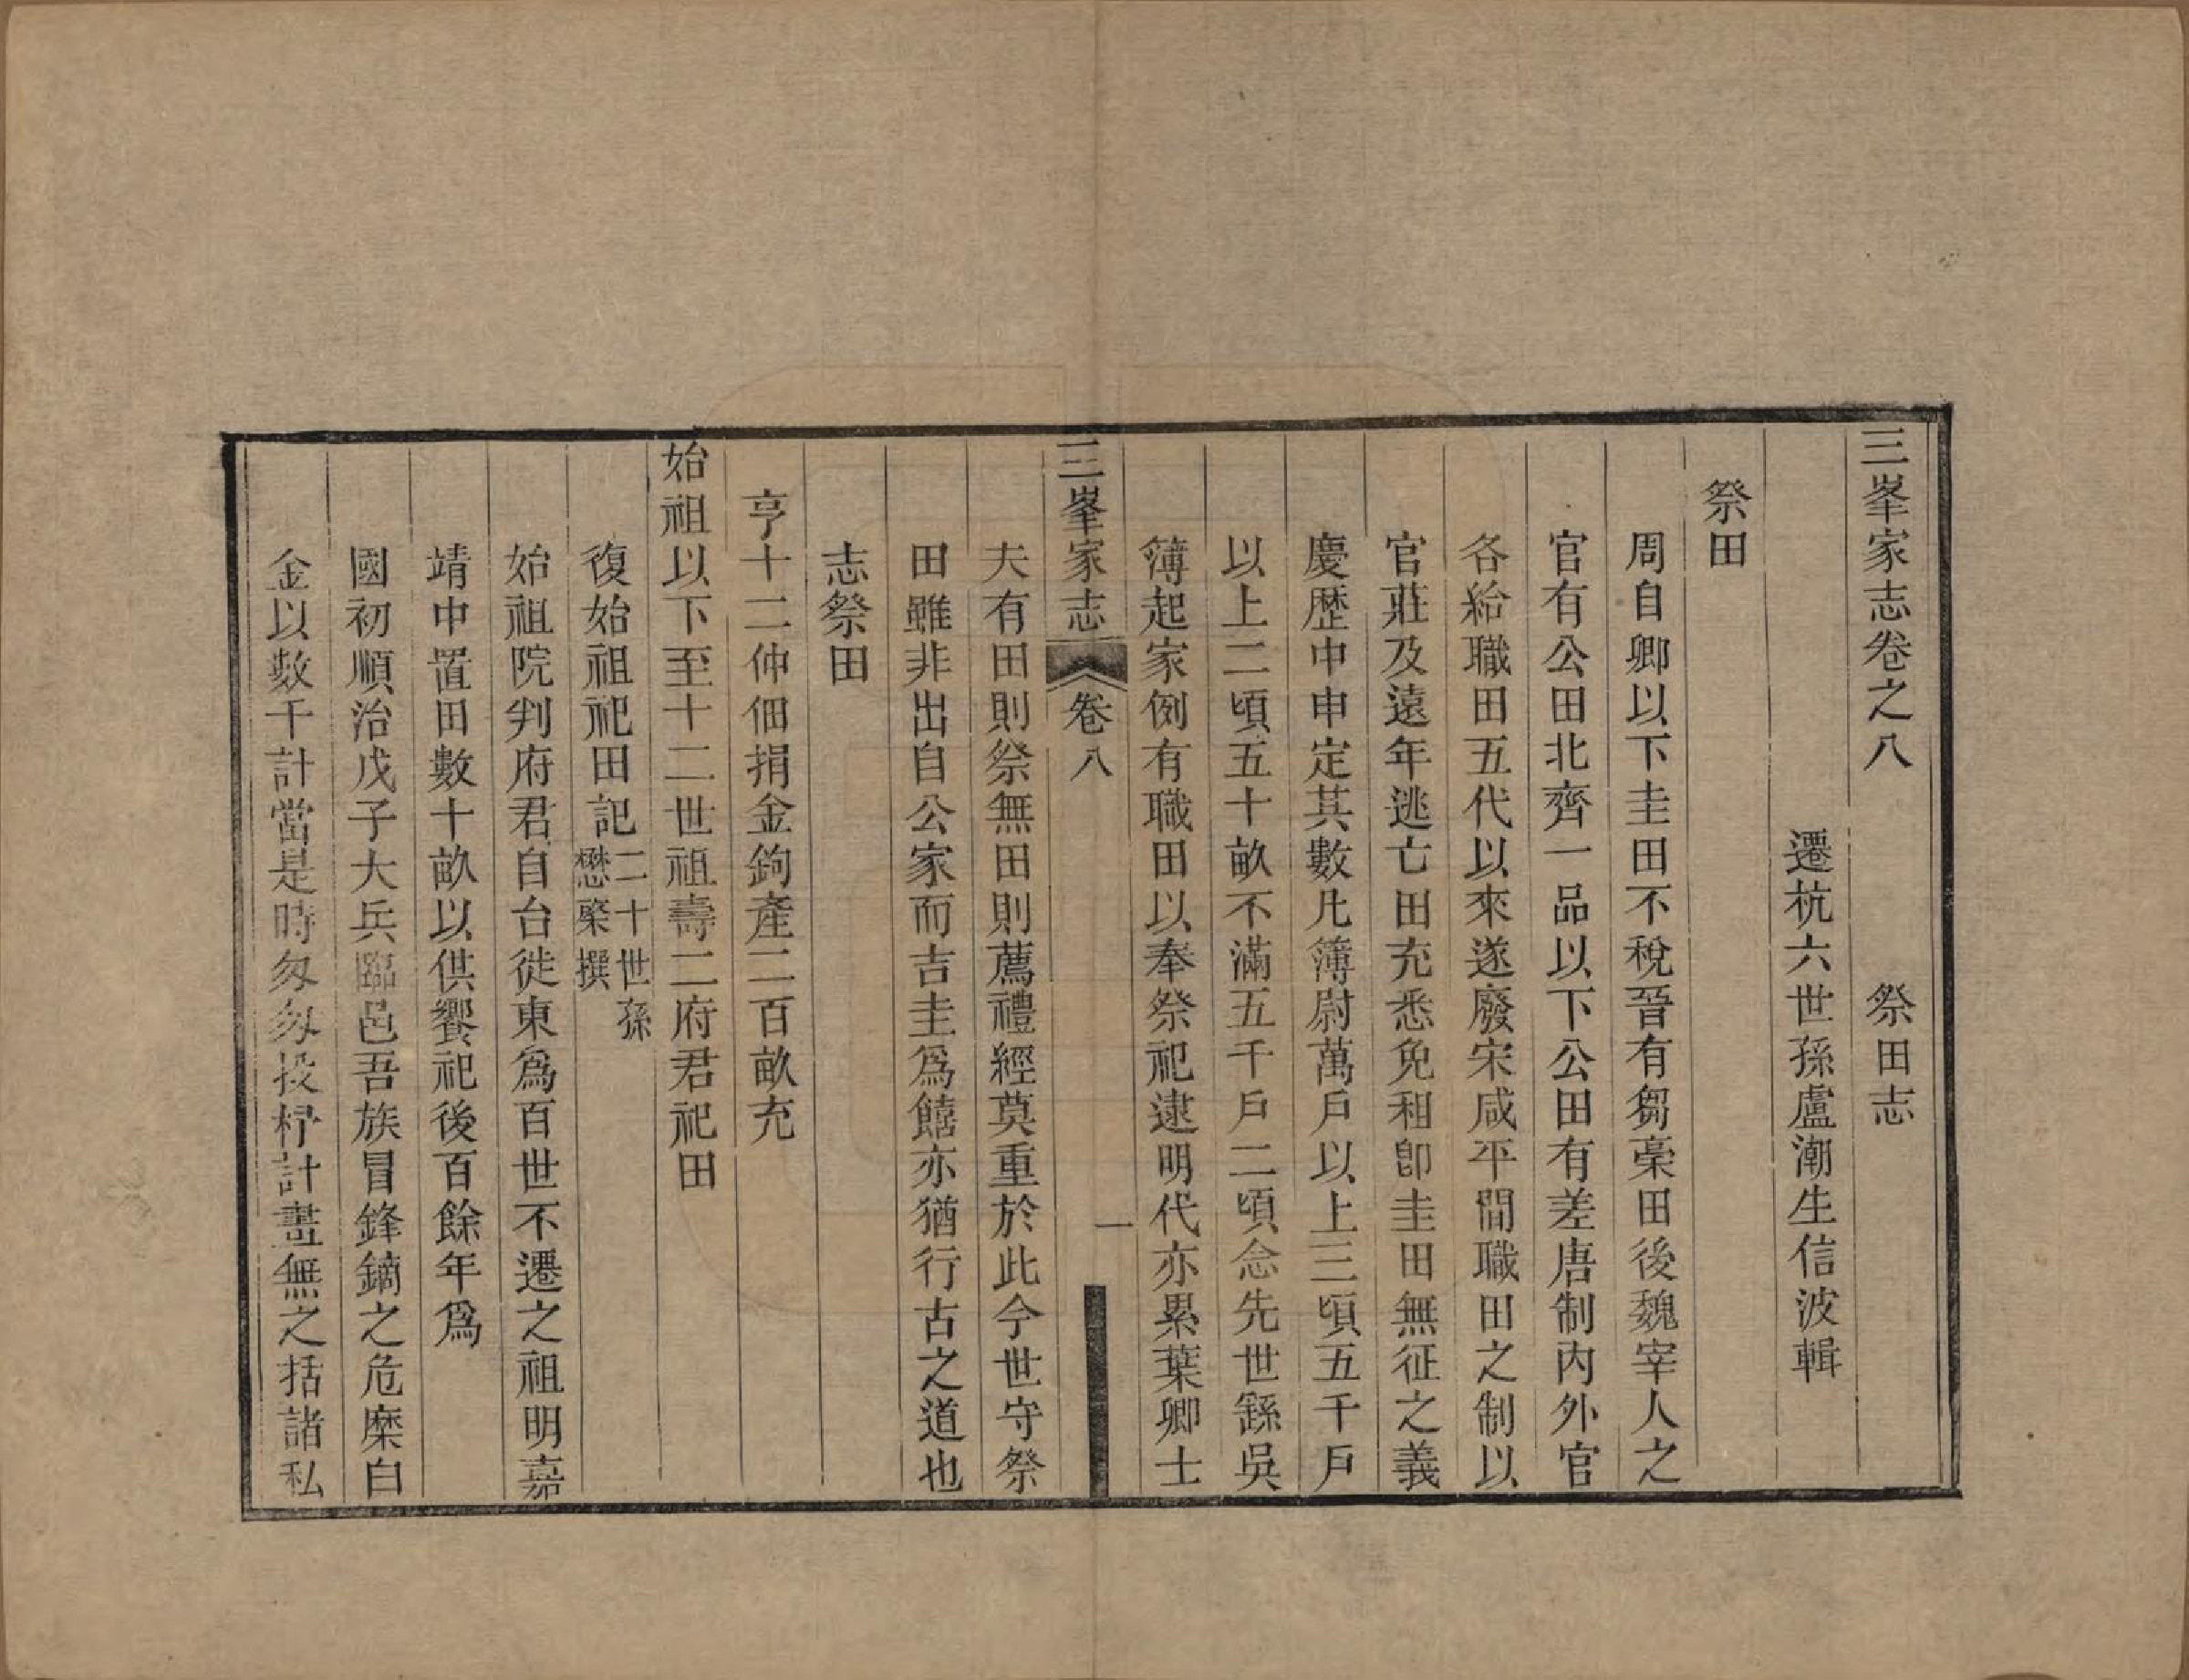 三峯家志卷之八　祭田志
遷杭六世孫盧潮生信波輯
祭田
周自卿以下圭田不稅晉有芻藁田後魏宰人之
官有公田北齊一品以下公田有差唐制內外官
各給職田五代以來遂廢宋咸平間職田之制以
官莊及遠年逃亡田充悉免租卽圭田無征之義
慶歷中申定其數凡簿尉萬戶以上三頃五千戶
以上二頃五十畝不滿五千戶二頃念先世繇吳
簿起家例有職田以奉祭祀逮明代亦累葉卿士
三峯家志　卷八　一
夫有田則祭無田則薦禮經莫重於此今世守祭
田雖非出自公家而吉圭爲饎亦猶行古之道也
志祭田
亨十二仲佃捐金鉤產二百畝充
始祖以下至十二世祖壽二府君祀田
復始祖祀田記二十世孫
懋棨撰
始祖院判府君自台徙東爲百世不遷之祖明嘉
靖中置田數十畝以供饗祀後百餘年爲
國初順治戊子大兵臨邑吾族冒鋒鏑之危糜白
金以數千計當是時匆匆投杼計畫無之括諸私